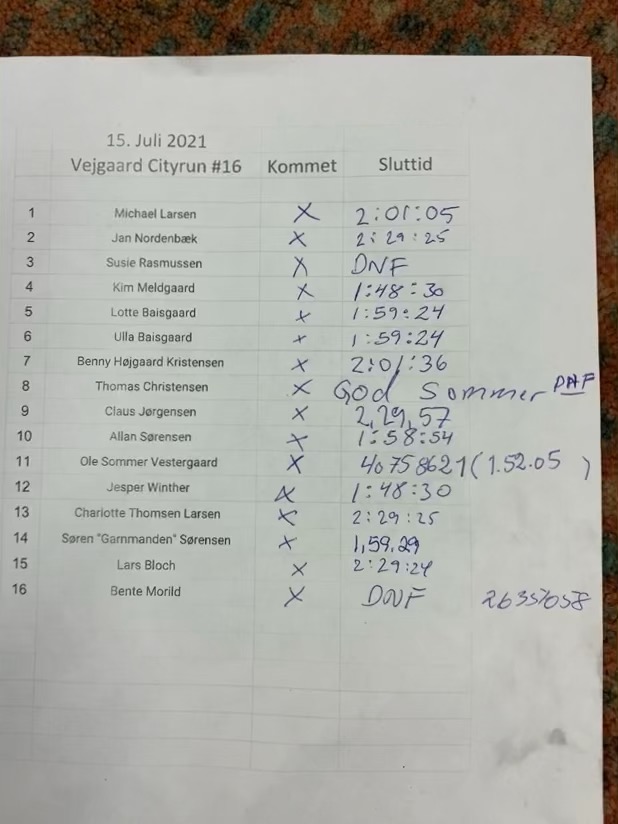 15. Juli 2021
Vejgaard Cityrun #16 Kommet Sluttid
1 Michael Larsen X 2:01:05
2 Jan Nordenbæk X 2:29:25
3 Susie Rasmussen X DNF
4 Kim Meldgaard X 1:48:30
5 Lotte Baisgaard X 1:59:24
6 Ulla Baisgaard X 1:59:24
7 Benny Højgaard Kristensen X 2:01:36
8 Thomas Christensen X God Sommer DNF
9 Claus Jørgensen X 2,29,57
10 Allan Sørensen X 1:58:54
11 Ole Sommer Vestergaard X 40758621 (1.52.05 )
12 Jesper Winther X 1:48:30
13 Charlotte Thomsen Larsen X 2:29:25
14 Søren "Garnmanden" Sørensen X 1,59.29
15 Lars Bloch X 2:29:24
16 Bente Morild X DNF 26357058